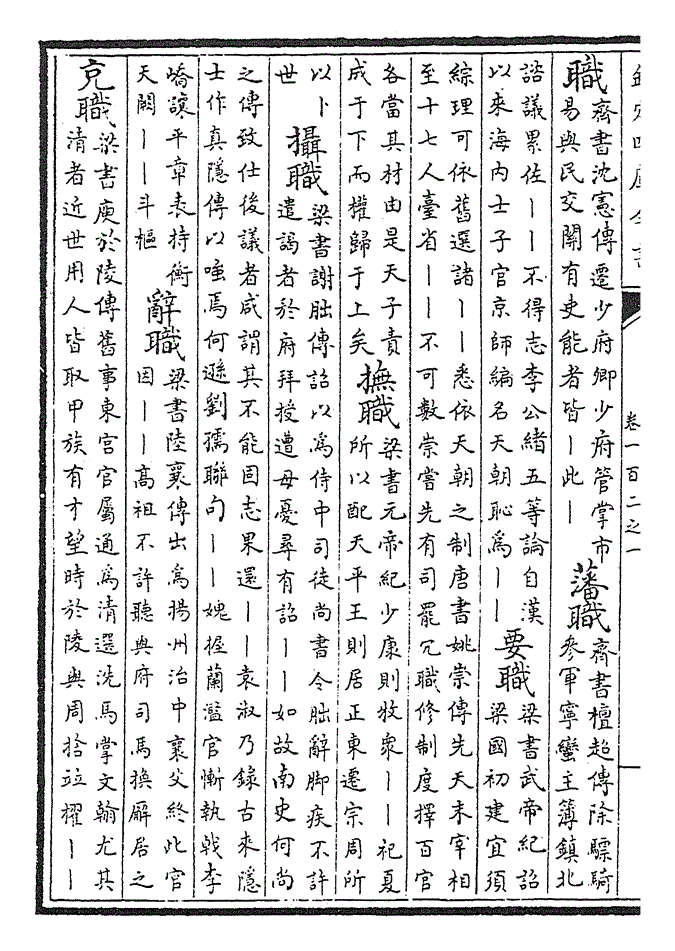 欽定四庫全書
卷一百二之一
職 齊書沈憲傳遷少府卿少府管掌市
易與民交關有吏能者皆丨此丨
藩職 齊書檀超傳除驃騎
參軍寧蠻主簿鎮北
諮議累佐丨丨不得志李公緒五等論自漢
以來海内士子官京師編名天朝恥為丨丨
要職 梁書武帝紀詔
梁國初建宜須
綜理可依舊選諸丨丨悉依天朝之制唐書姚崇傳先天末宰相
至十七人臺省丨丨不可數崇嘗先有司罷冗職修制度擇百官
各當其材由是天子責
成于下而權歸于上矣
撫職 梁書元帝紀少康則牧衆丨丨祀夏
所以配天平王則居正東遷宗周所
以卜
世
攝職 梁書謝朏傳詔以為侍中司徒尚書令朏辭脚疾不許
遣謁者於府拜授遭母憂尋有詔丨丨如故南史何尚
之傳致仕後議者咸謂其不能固志果還丨丨袁淑乃録古來隱
士作真隱傳以嗤焉何遜劉孺聯句丨丨媿握蘭濫官慚執戟李
嶠讓平章表持衡
天闕丨丨斗樞
辭職 梁書陸襄傳出為揚州治中襄父終此官
固丨丨高祖不許聽與府司馬換廨居之
充職 梁書庾於陵傳舊事東宫官屬通為清選洗馬掌文翰尤其
清者近世用人皆取甲族有才望時於陵與周捨竝擢丨丨